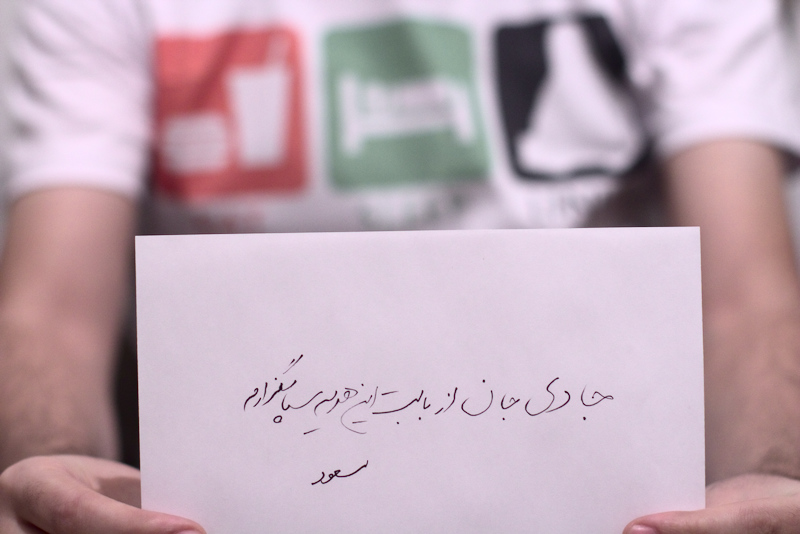 جادی جان از بابت این هدیه سپاسگزارم
مسعود